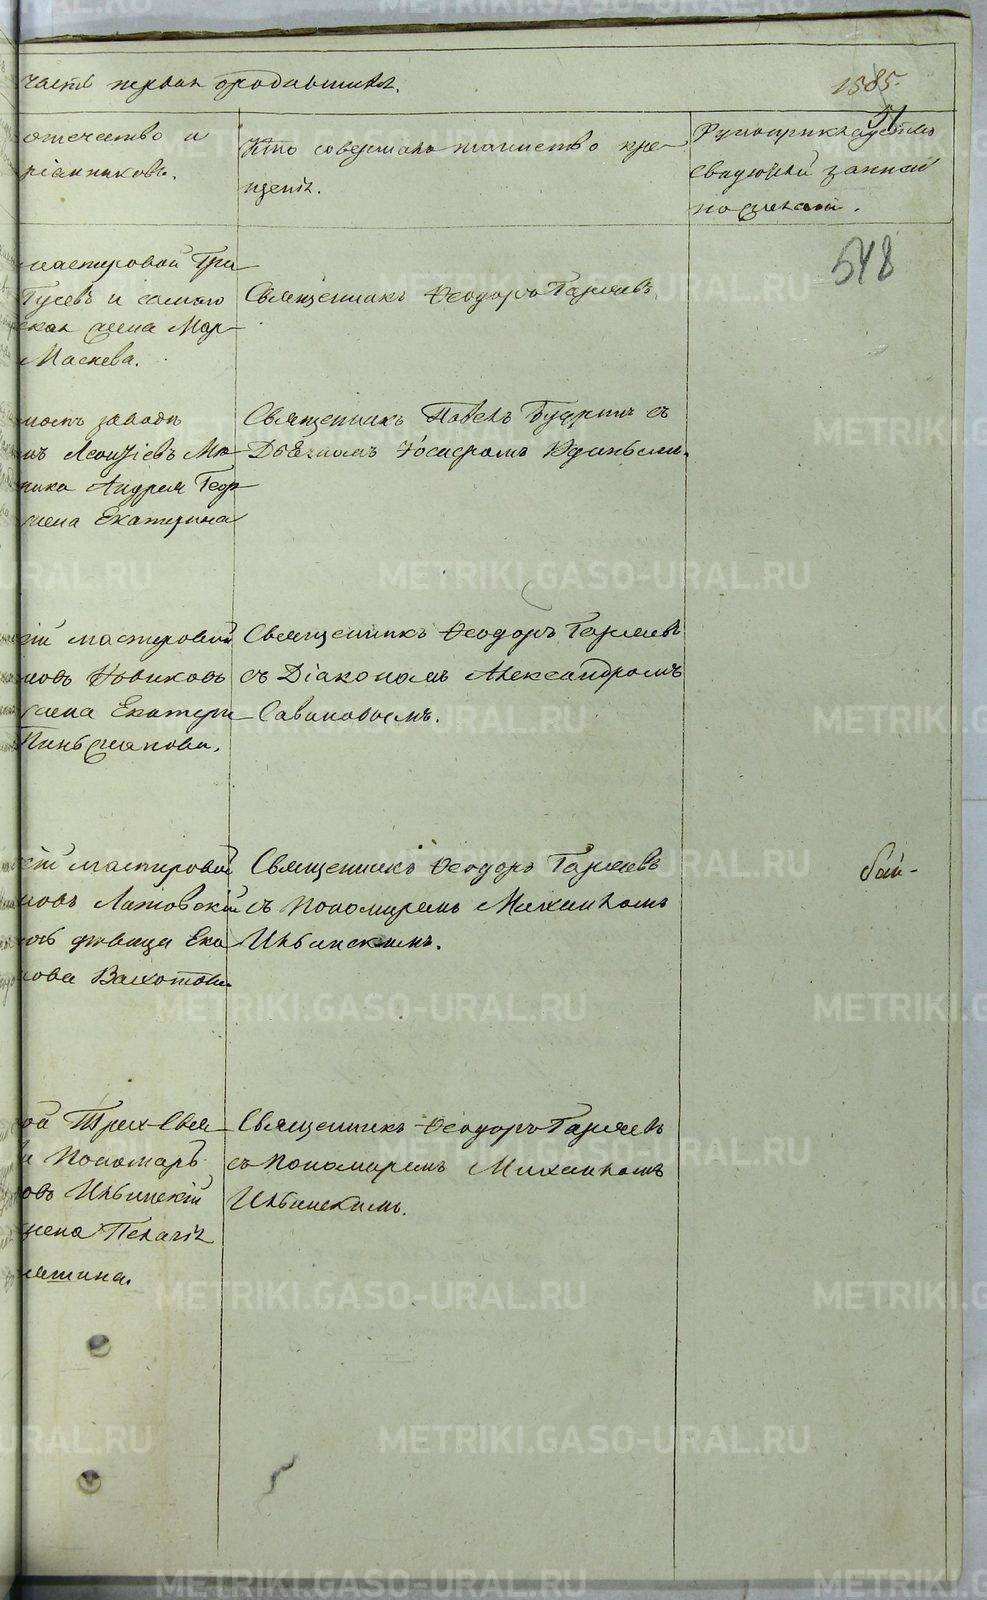 часть первая о родившихся.
1585.
51
отчество и
ріемниковъ.
Кто совершалъ таинство кре-
щенія.
Рукоприкладство
свидѣтелей записи
по желанію.
548
мастеровой Гри
Гусевъ и
ская жена Мар-
Маскева.
Священникъ Ѳеодоръ Гаряевъ.
завода
нъ Леонтіевъ
ника Андрея Геор-
жена Екатерина
Священникъ Павелъ Будринъ съ
Дьячкомъ
кій мастеровой
новъ Новиковъ
жена Екатери-
Пиньжакова.
Священникъ Ѳеодоръ Гаряевъ
съ Діакономъ Александромъ
Савиновымъ.
кій мастеровой
новъ Латовскій
дѣвица Ека
Священникъ Ѳеодоръ Гаряевъ
съ Пономаремъ Михаиломъ
Ильинскимъ.
ой Трех-Свя-
и Пономарь
овъ Ильинскій
жена Пелагія
Священникъ Ѳеодоръ Гаряевъ
съ Пономаремъ Михаиломъ
Ильинскимъ.
METRIKI.GASO-URAL.RU